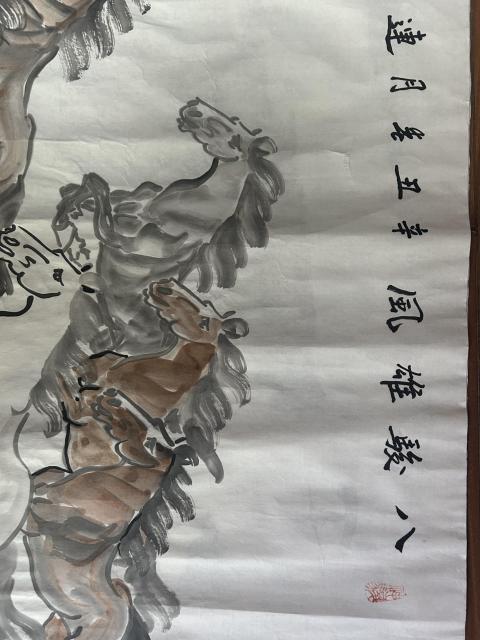 八駿雄風 辛丑冬月